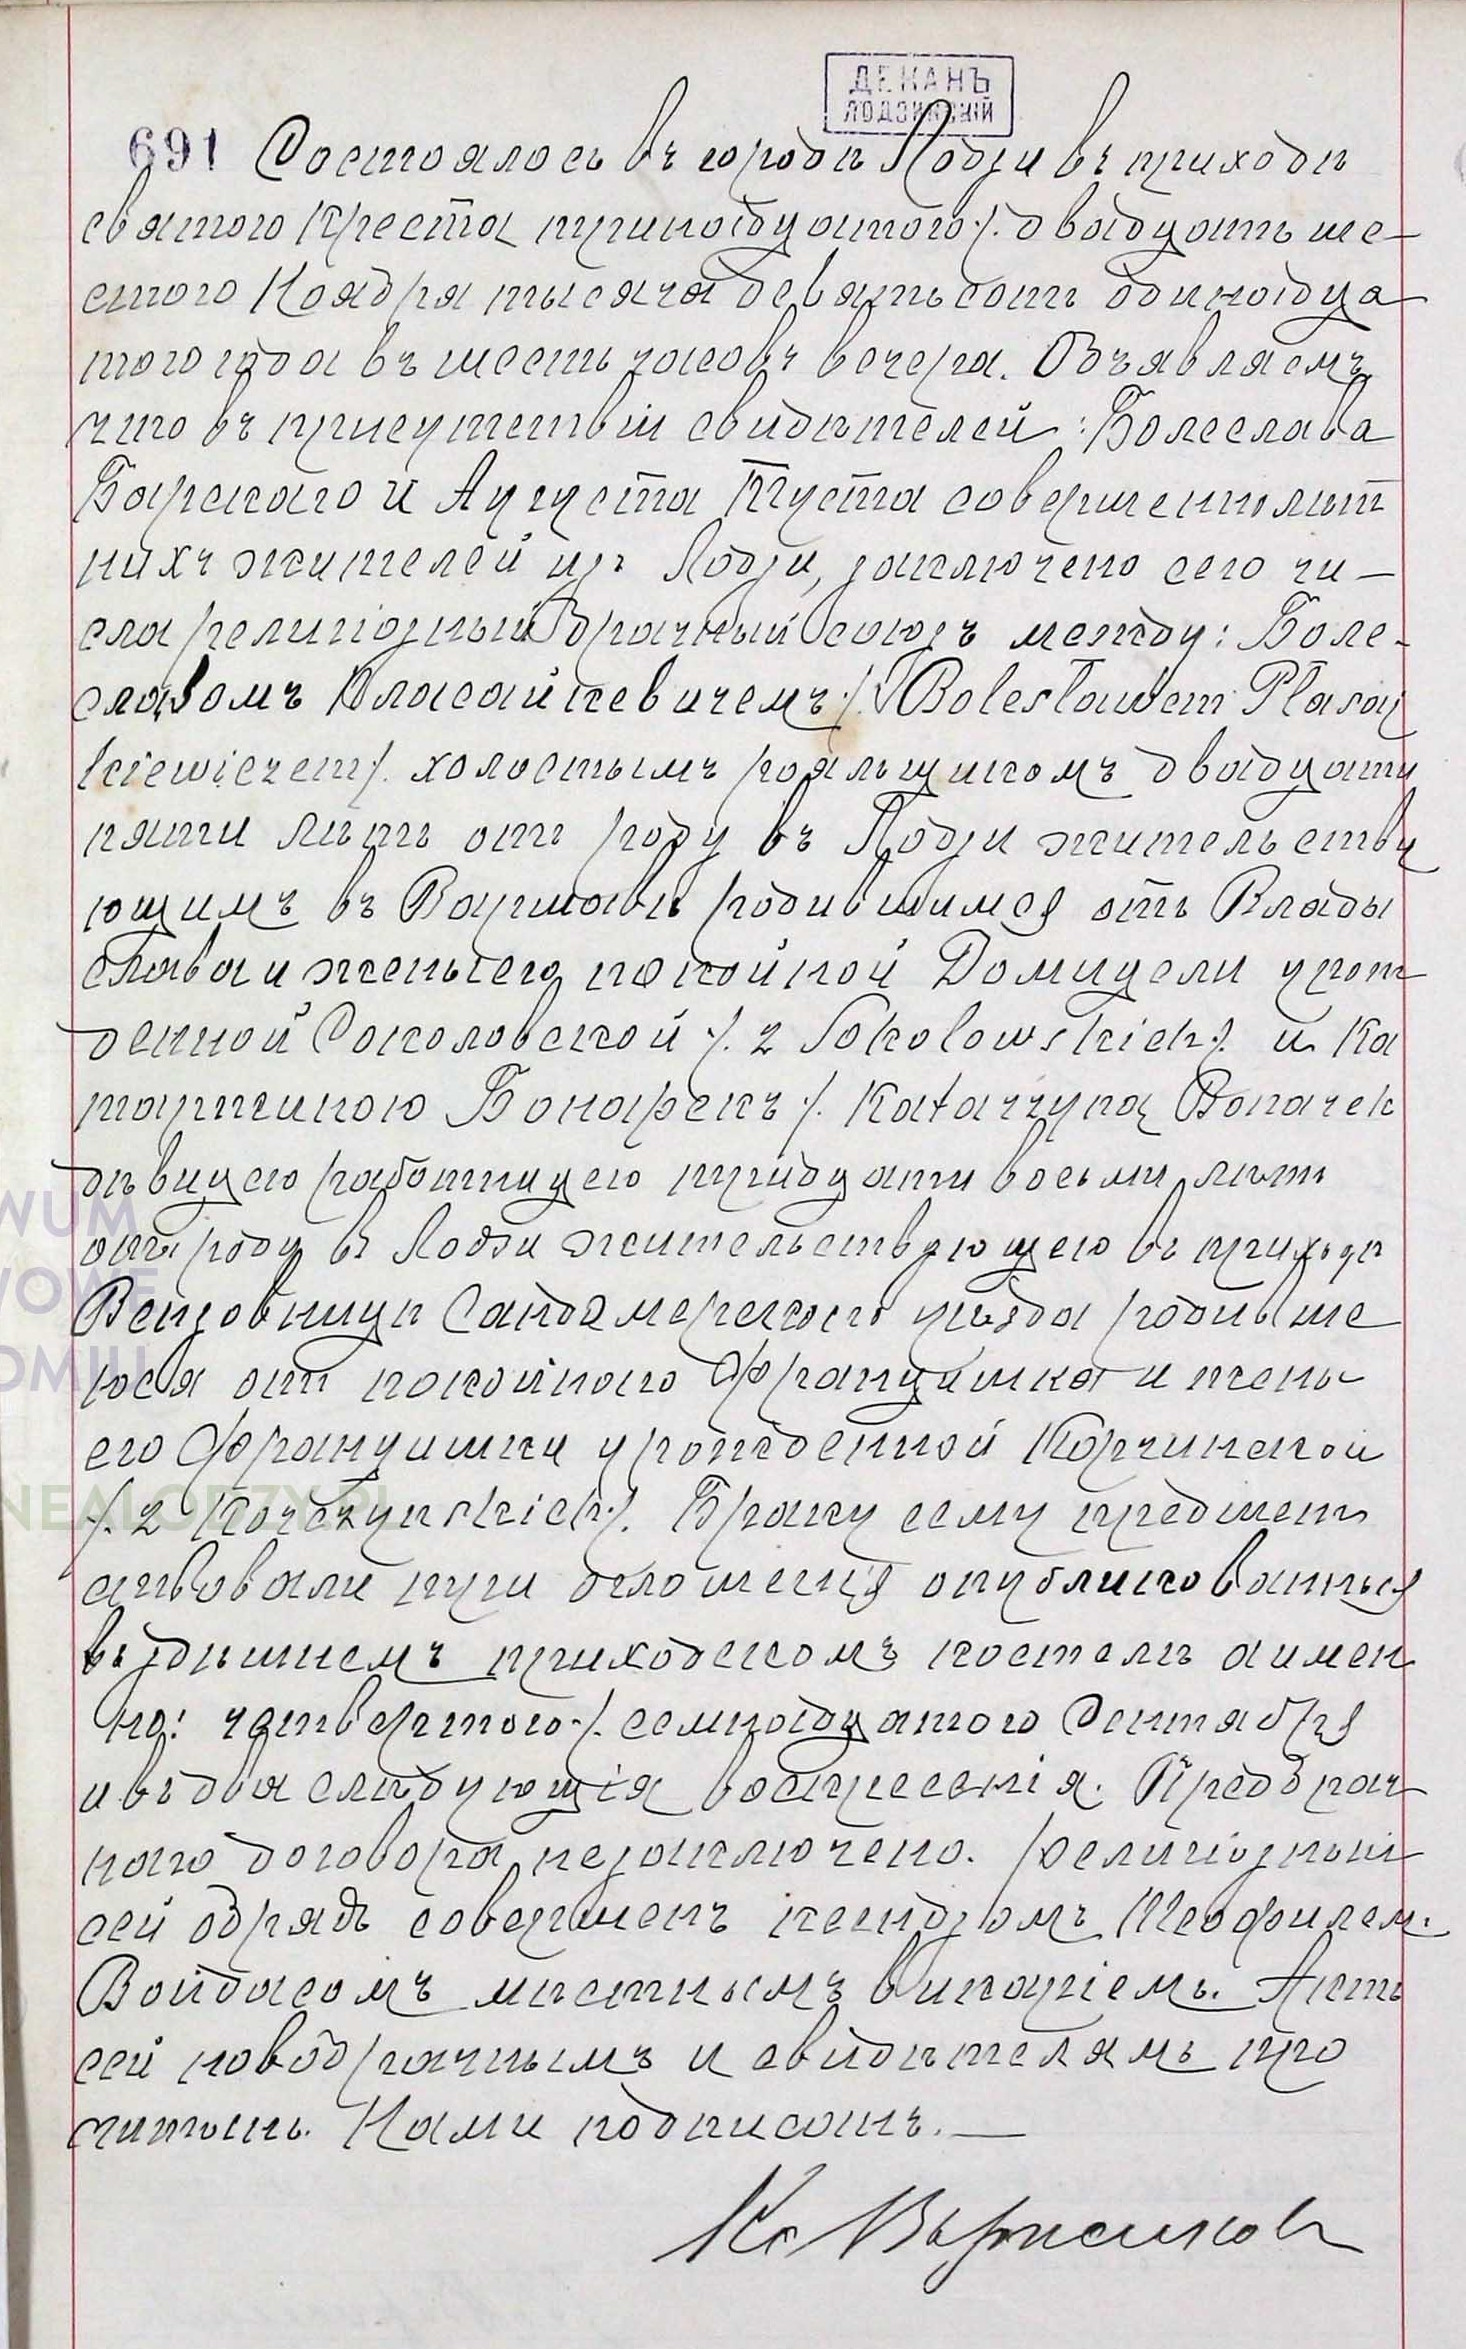 ДЕКАНЪ
ЛОДЗИНСКІЙ
691 Состоялось въ городѣ Лодзи въ приходѣ
святого Креста тринадцатого /. двадцать ше-
стого Ноября тысяча девятьсотъ одинадца
того года въ шесть часовъ вечера. Объявляемъ,
что въ присутствіи свидѣтелей: Болеслава
Барскаго и Августа Туста совершеннолѣт
нихъ жителей изъ Лодзи, заключено сего чи-
сла религіозный брачный союзъ между: Боле-
славомъ Пласайкевичемъ /. Bolesławem Płasaj
kiewiczem /. холостымъ рояльщикомъ двадцати
пяти лѣтъ отъ роду въ Лодзи жительству
ющимъ въ Варшавѣ родившимся отъ Влады
слава и жены его покойной Домицели урож
денной Соколовской /. z Sokołowskich /. и Ка
таржиною Бонарекъ /. Katarzyną Bonarek
дѣвицею работницею тридцати восьми лѣтъ
отъ роду въ Лодзи жительствующею въ приходѣ
Сандомерскаго уѣзда родивше
юся отъ покойного Францишка и жены
его Францишки урожденной Корчинской
/. z Korczyńskich /. Браку сему предшест
вовали три оглашенія опубликованныя
въ здѣшнемъ приходскомъ костелѣ а имен
но: четвертого /. семнадцатого Сентября
и въ два слѣдующія воскресенія. Предбрач
наго договора не заключено. Религіозный
сей обрядъ совершенъ ксендзомъ Теофилем.
Войдасомъ мѣстнымъ викаріемъ. Актъ
сей новобрачнымъ и свидѣтелямъ про
читанъ. Нами подписанъ.—
Кс